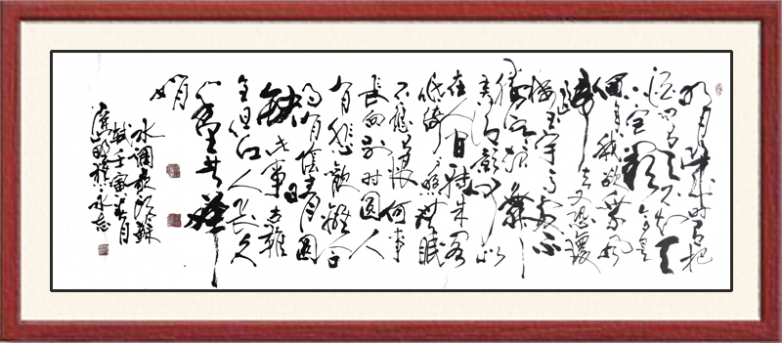 明月几时有把
酒问青天不知天
上宫阙今夕是
何年我欲乘风
归去又恐琼
楼玉宇高处不
胜寒起舞
弄清影何似
在人间转朱阁
低绮户照无眠
不应有恨何事
长向别时圆人
有悲欢离合
月有阴晴圆
缺此事古难
全但愿人长久
千里共婵
娟
水调歌头苏
轼壬寅春月
永志